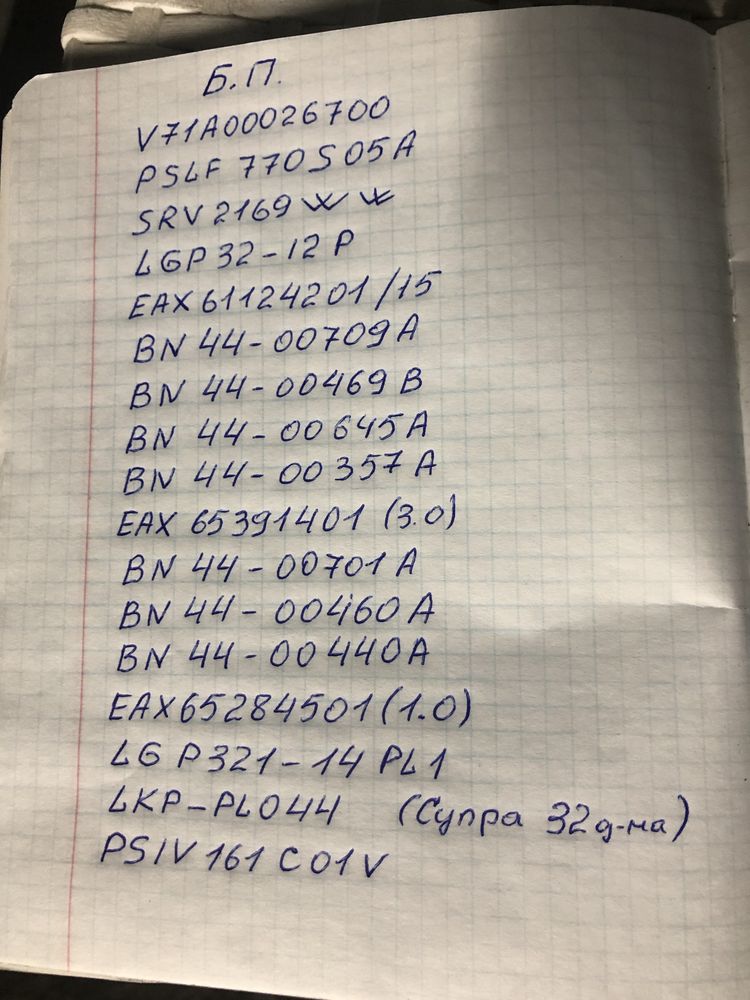 Б.П.
V71A00026700
PSLF 770S05A
SRV2169WW
LGP32-12P
EAX61124201/15
BN 44-00709A
BN 44-00469B
BN 44-00645A
BN 44-00357A
EAX 65391401 (3.0)
BN 44-00701A
BN 44-00460A
BN 44-00440A
EAX65284501(1.0)
LGP321-14PL1
LKP-PL044 (Супра 32д-ма)
PSIV161C01V